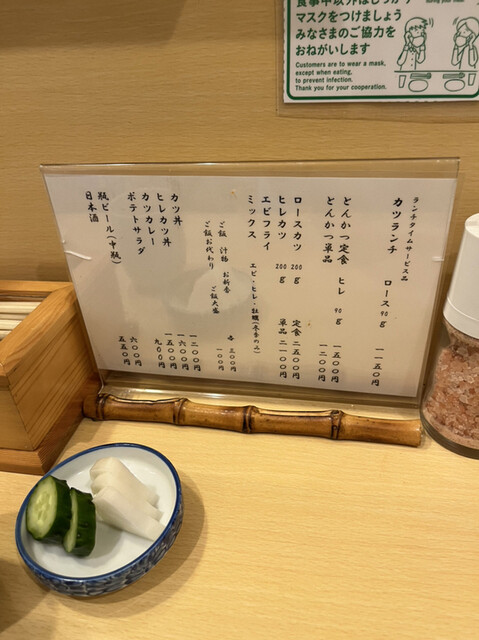 食事中以外はしっかり
マスクをつけましょう
みなさまのご協力を
おねがいします
Customers are to wear a mask,
except when eating,
to prevent infection.
Thank you for your cooperation.
ランチタイムサービス品
カツランチ ロース 90g 一一五〇円
とんかつ定食 ヒレ 90g 一五〇〇円
とんかつ単品 一二〇〇円
ロースカツ 200g 定食 二五〇〇円
ヒレカツ 200g 単品 二一〇〇円
エビフライ
ミックス エビ・ヒレ・牡蠣(冬季のみ)
ご飯 汁物 お新香 各 三〇〇円
ご飯お代わり ご飯大盛 一〇〇円
カツ丼 一二〇〇円
ヒレカツ丼 一六〇〇円
カツカレー 一五〇〇円
ポテトサラダ 九〇〇円
瓶ビール(中瓶) 六〇〇円
日本酒 五五〇円